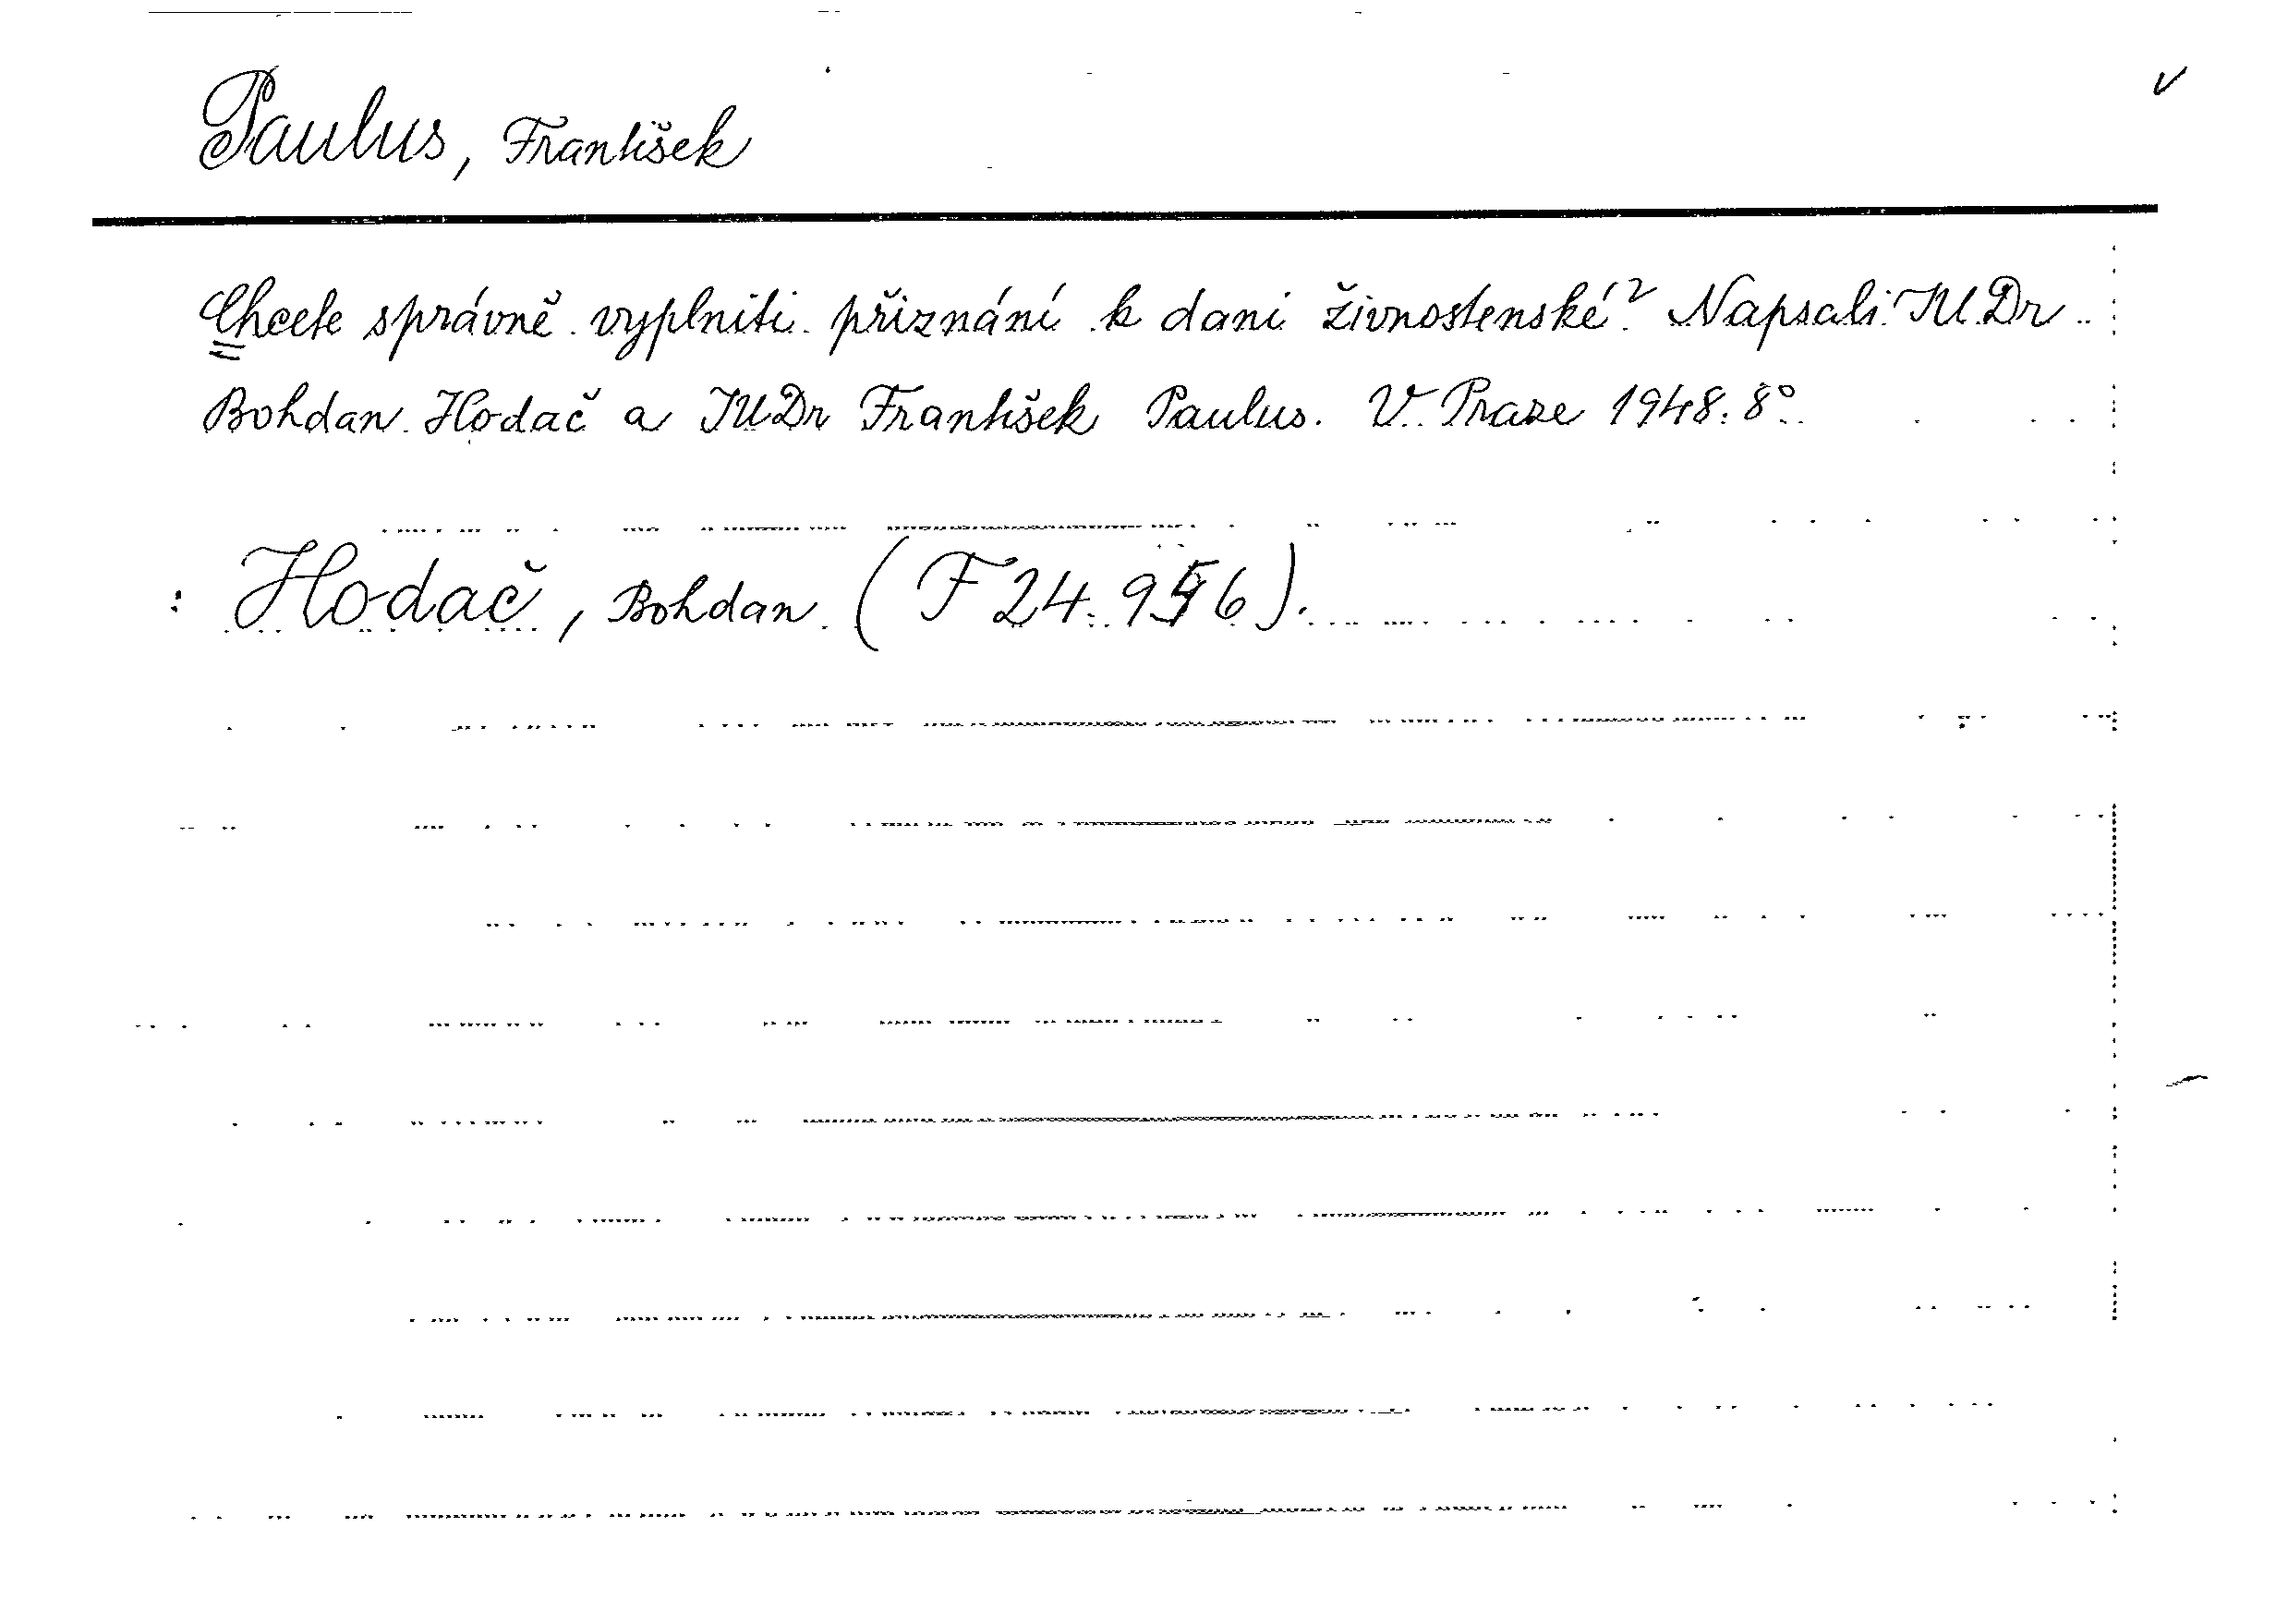 Paulus, František
Chcete správně vyplniti přiznání k dani živnostenské? Napsali JU.Dr
Bohdan Hodač a JUDr František Paulus. V Praze 1948. 8°.
: Hodač, Bohdan (F 24.956).